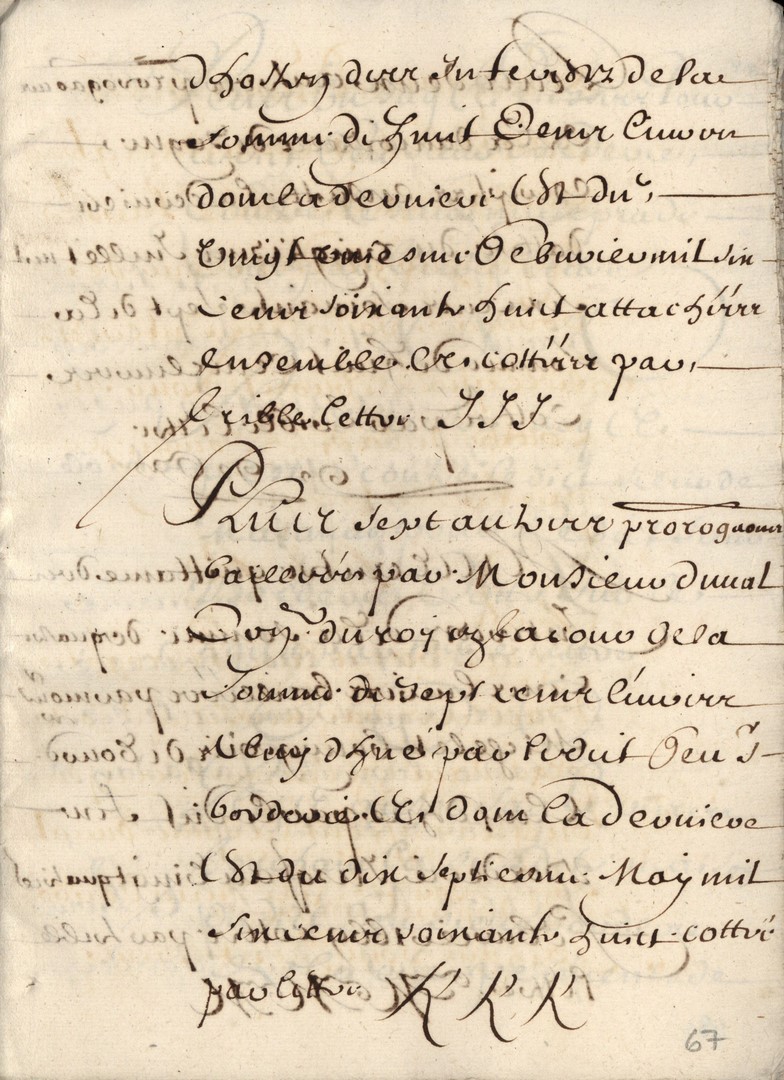 dhostun des Interestz de la
somme de huit Cens livres
dont la derniere Est du
vingt sine Febvrier mil six
cens soixante huict attachées
ensemble Et cottées par
trible lettre JJJ
Plus sept autres prorogaons
par Monsieur duval
du roy de la
somme de sept cens livres
deue par ledict Feu Sr
Et dont la derniere
Est du dix septiesme May mil
six cens soixante huict cotté
par lettre K K K
67